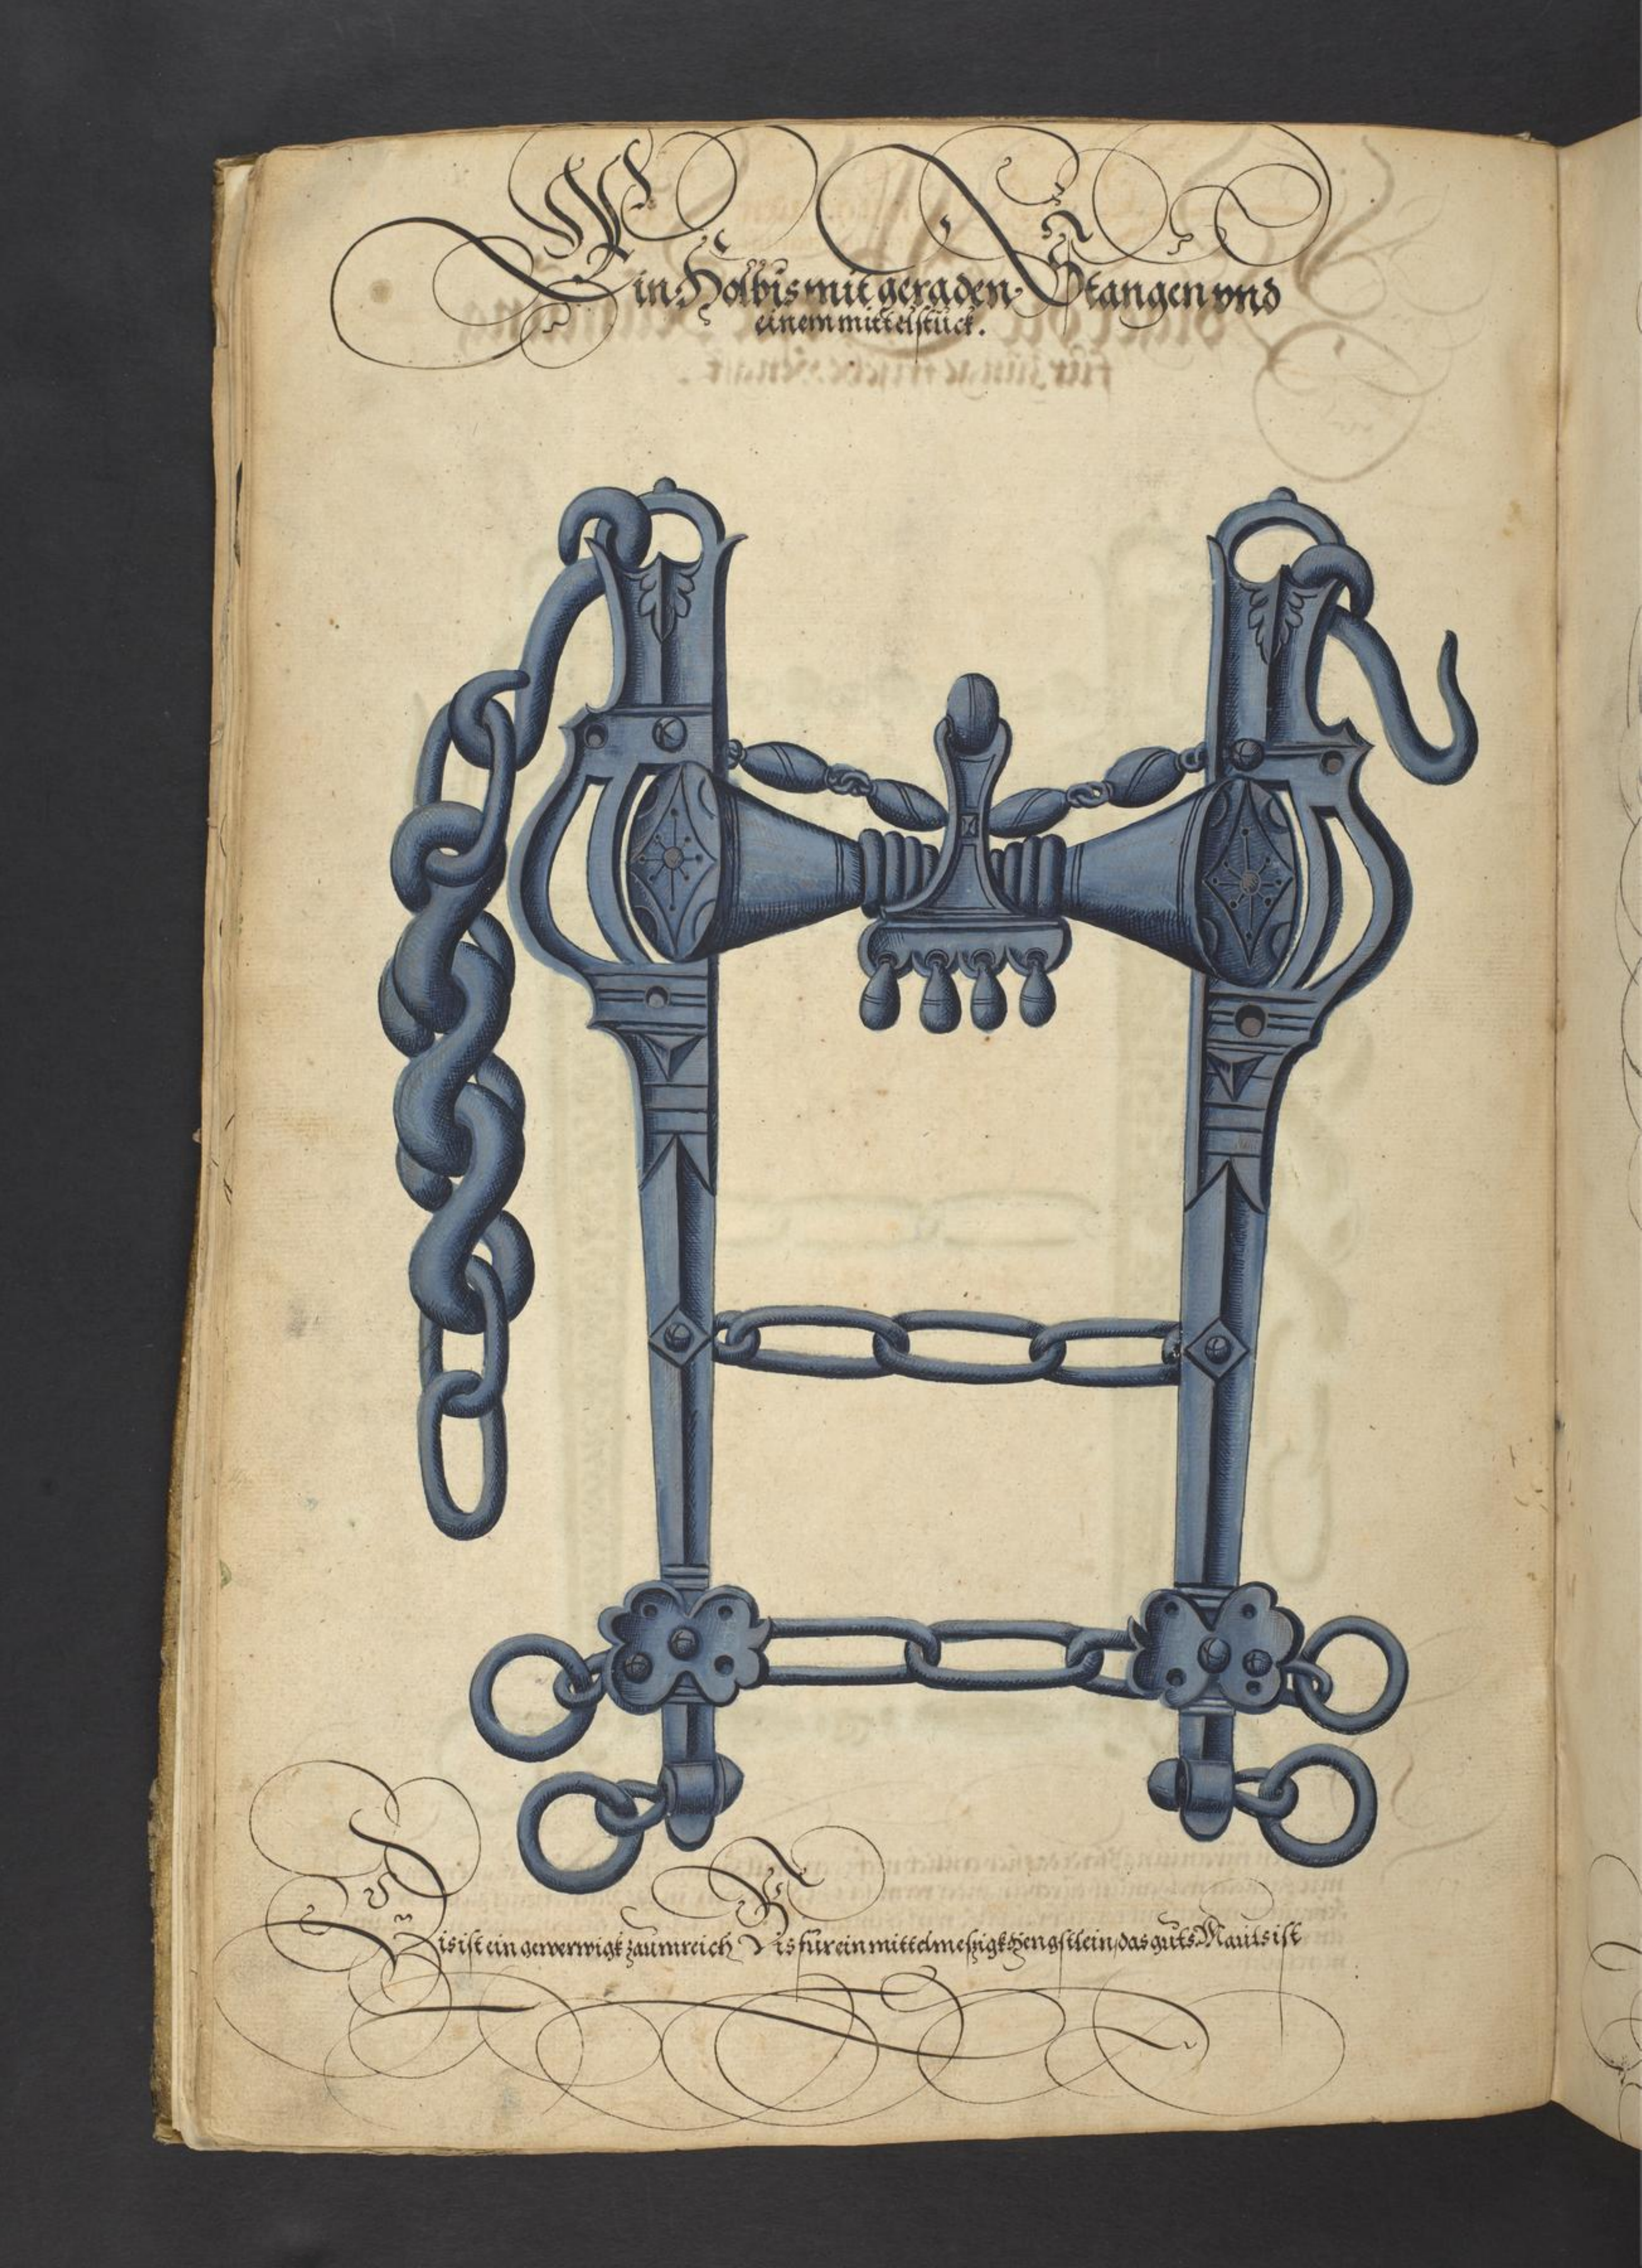 Ein Holbis mit geraden Stangen vnd
einem mittelstück.
Dis ist ein gewerwigk zaumreich Bis für ein mittelmeszigk Hengstlein, das guts Mauls ist